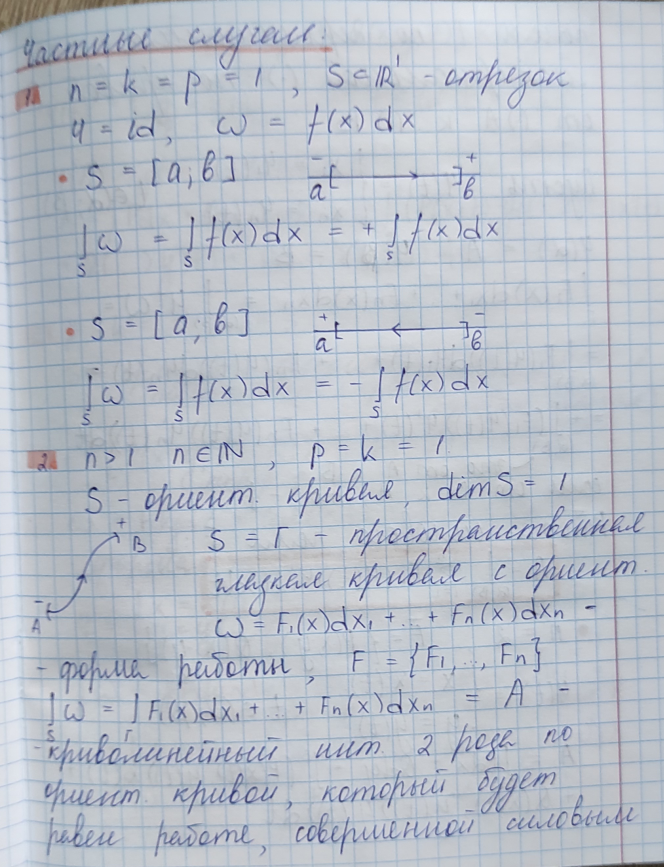 Частные случаи:
1. n = k = p = 1, S ⊂ ℝ¹ - отрезок
φ = id, ω = f(x)dx
• S = [a; b] - a[ ]b +
∫_S ω = ∫_S f(x)dx = + ∫_S f(x)dx
• S = [a; b] + a[ ]b -
∫_S ω = ∫_S f(x)dx = - ∫_S f(x)dx
2. n>1 n∈ℕ, p = k = 1
S - ориент. кривая, dim S = 1
+ B S = Г - пространственная
гладкая кривая с ориент.
- A ω = F₁(x)dx₁ + ... + Fₙ(x)dxₙ -
- форма работы, F = {F₁, ..., Fₙ}
∫_S ω = ∫_Г F₁(x)dx₁ + ... + Fₙ(x)dxₙ = A -
- криволинейный инт. 2 рода по
ориент. кривой, который будет
равен работе, совершенной силовым